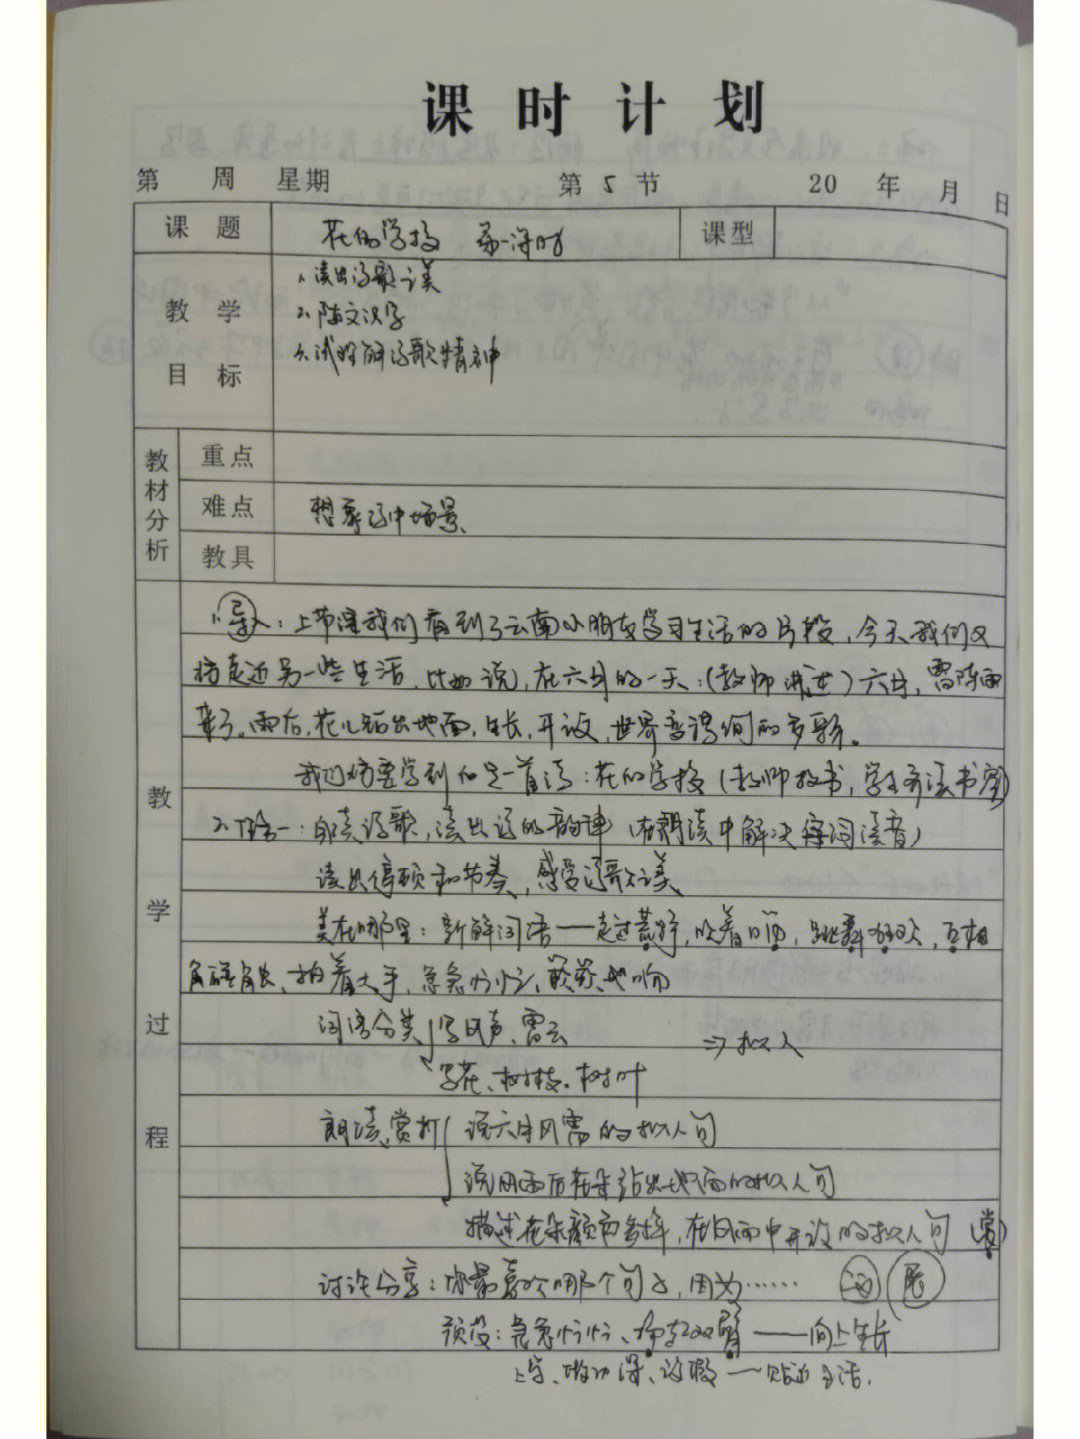 课时计划
第 周 星期 第 5 节 20 年 月 日
课题 花的学校 第一课时 课型
教学目标 1、读出诗歌之美
2、随文识字
3、试理解诗歌精神
教材分析 重点
难点 想象诗中场景
教具
教学过程
1、导入：上节课我们看到了云南小朋友学习生活的片段，今天我们又
将走近另一些生活，比如说，在六月的一天：(教师讲述) 六月，雷阵雨
来了。雨后，花儿钻出地面，生长，开放，世界变得绚丽多彩。
我们将要学到的是一首诗：花的学校 (教师板书，学生齐读书空)
2、活一：自读诗歌，读出诗的韵律 (在朗读中解决字词读音)
读出停顿和节奏，感受诗歌之美
美在哪里：新解词语——走过荒野，吹着口笛，跳舞狂欢，互相
碰触、拍着大手，急急忙忙、簌簌地响
词语分类 写风声、雷云 ⇒拟人
写花、树枝、树叶
朗读、赏析 说六月风雷的拟人句
说风雨后花朵钻出地面的拟人句
描述花朵颜色多样，在风雨中开放的拟人句 (赏)
讨论分享：你最喜欢哪个句子，因为…… 展
预设：急急忙忙、伸出双臂——向上生长
上学、做功课、放假——贴近生活.